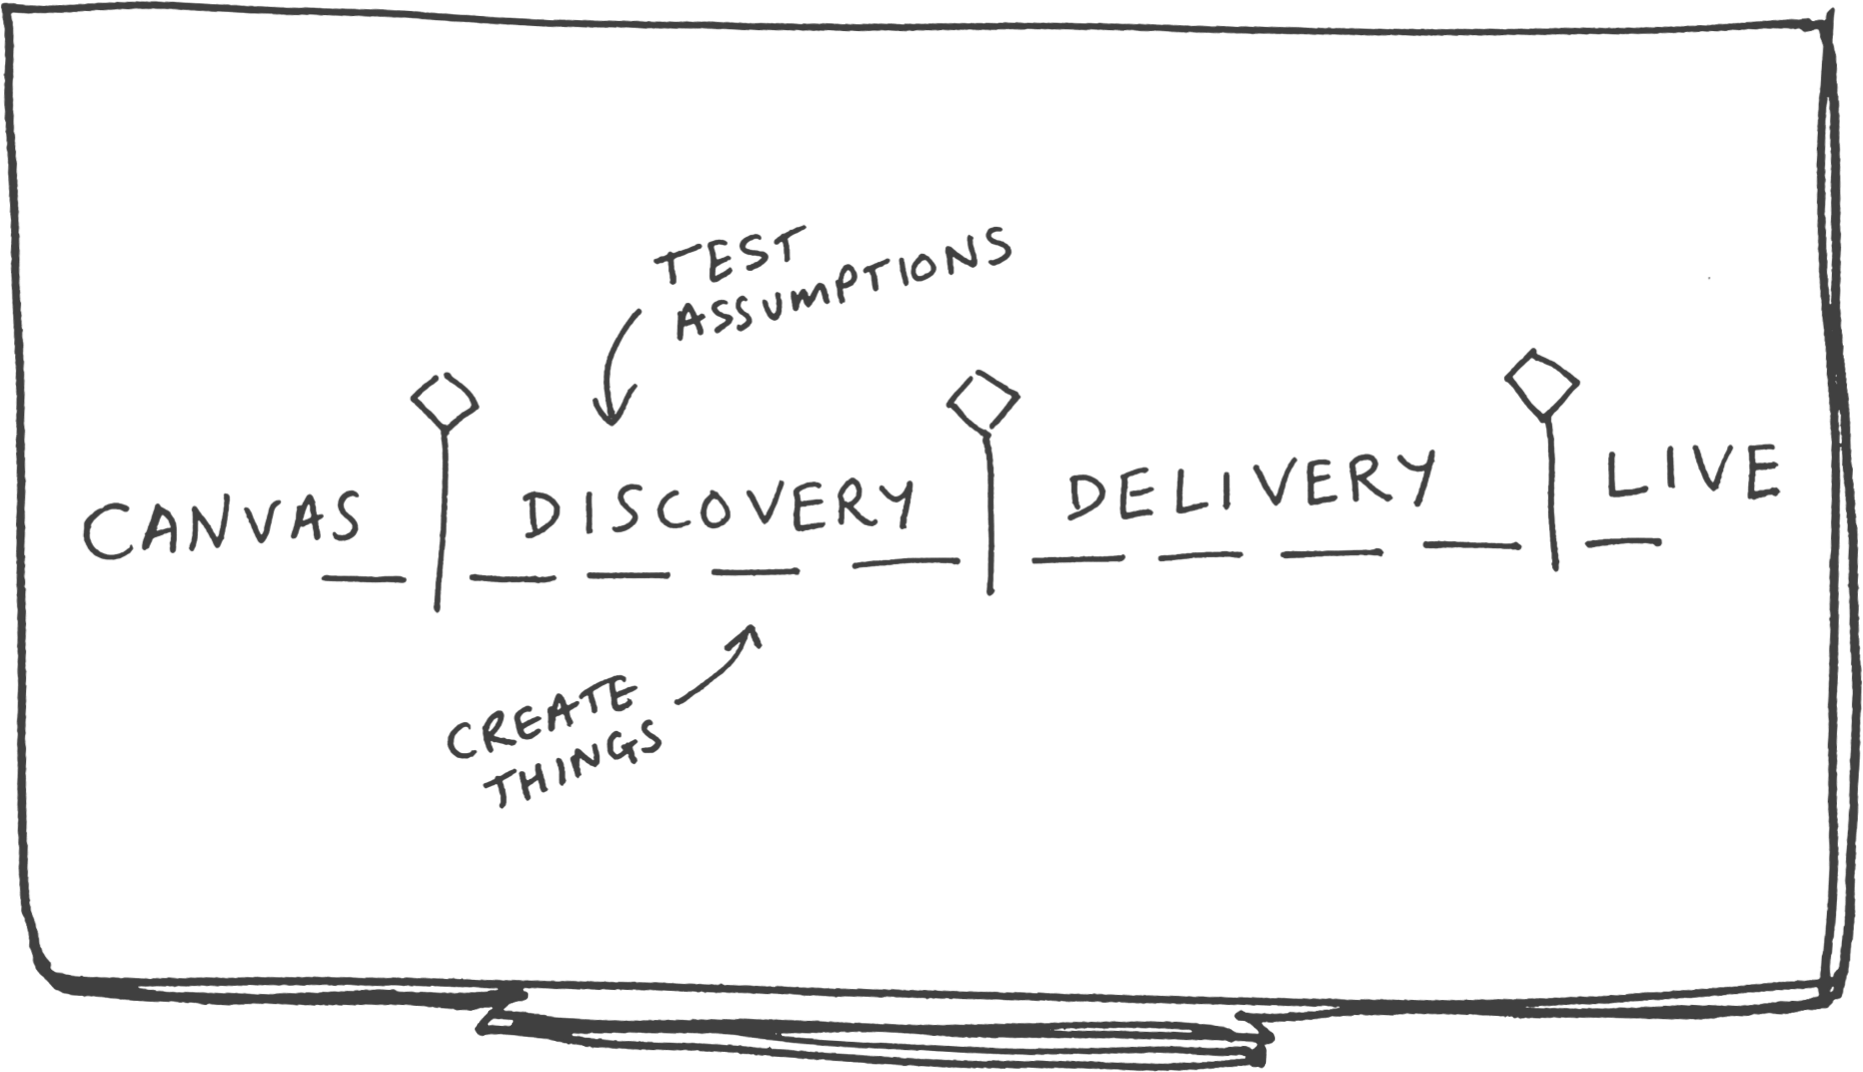 TEST
ASSUMPTIONS
CANVAS DISCOVERY DELIVERY LIVE
CREATE
THINGS